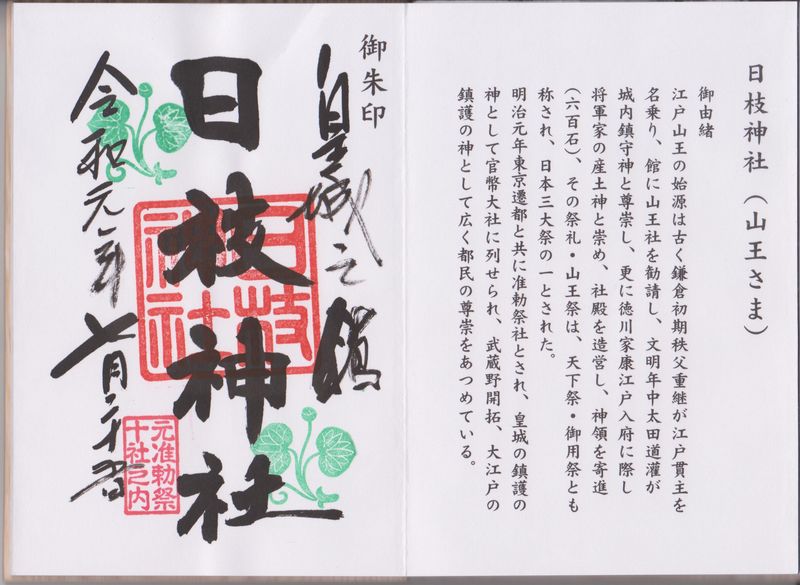 日枝神社（山王さま）
御由緒
江戸山王の始源は古く鎌倉初期秩父重継が江戸貫主を
名乗り、館に山王社を勧請し、文明年中太田道灌が
城内鎮守神と尊崇し、更に徳川家康江戸入府に際し
将軍家の産土神と崇め、社殿を造営し、神領を寄進
（六百石）、その祭礼・山王祭は、天下祭・御用祭とも
称され、日本三大祭の一とされた。
明治元年東京遷都と共に准勅祭社とされ、皇城の鎮護の
神として官幣大社に列せられ、武蔵野開拓、大江戸の
鎮護の神として広く都民の尊崇をあつめている。
御朱印
皇城之鎮
日枝神社
日枝
神社
元准勅祭
十社之内
令和元年七月